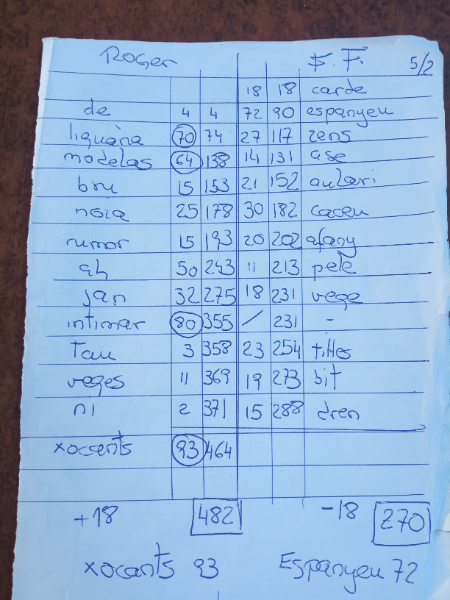 Roger S. F. 5/2
18 18 carde
de 4 4 72 90 espanyeu
liquàna 70 74 27 117 zens
modelas 64 138 14 131 ase
bru 15 153 21 152 aulari
noia 25 178 30 182 caceu
rumor 15 193 20 202 afany
ah 50 243 11 213 pelé
jan 32 275 18 231 vege
intimar 80 355 / 231 -
tau 3 358 23 254 titlles
veges 11 369 19 273 bit
ni 2 371 15 288 dren
xocants 93 464
+18 482 -18 270
xocants 93 Espanyeu 72